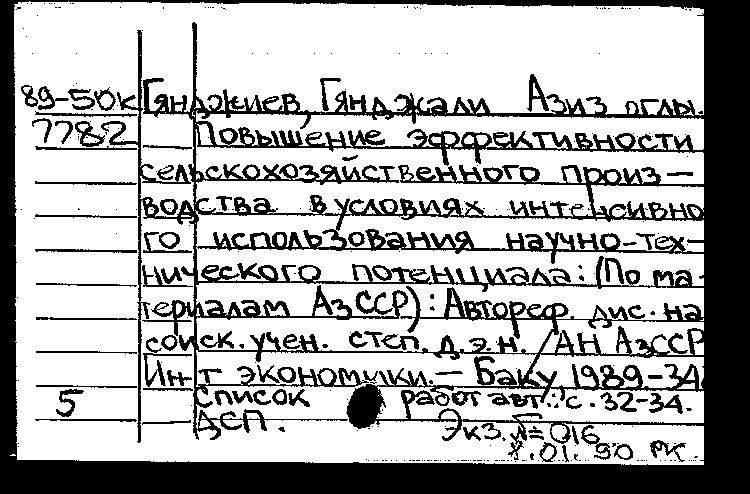 89-50к Гянджиев, Гянджали Азиз оглы.
7782 Повышение эффективности
сельскохозяйственного произ-
водства в условиях интенсивно
го использования научно-тех-
нического потенциала: (По ма-
териалам АзССР): Автореф. дис. на
соиск. учен. степ. д.э.н. / АН АзССР
Ин-т экономики. - Баку, 1989. - 34
5 Список работ авт.: с. 32-34.
ДСП. Экз. № 016
8.01.90 РК.